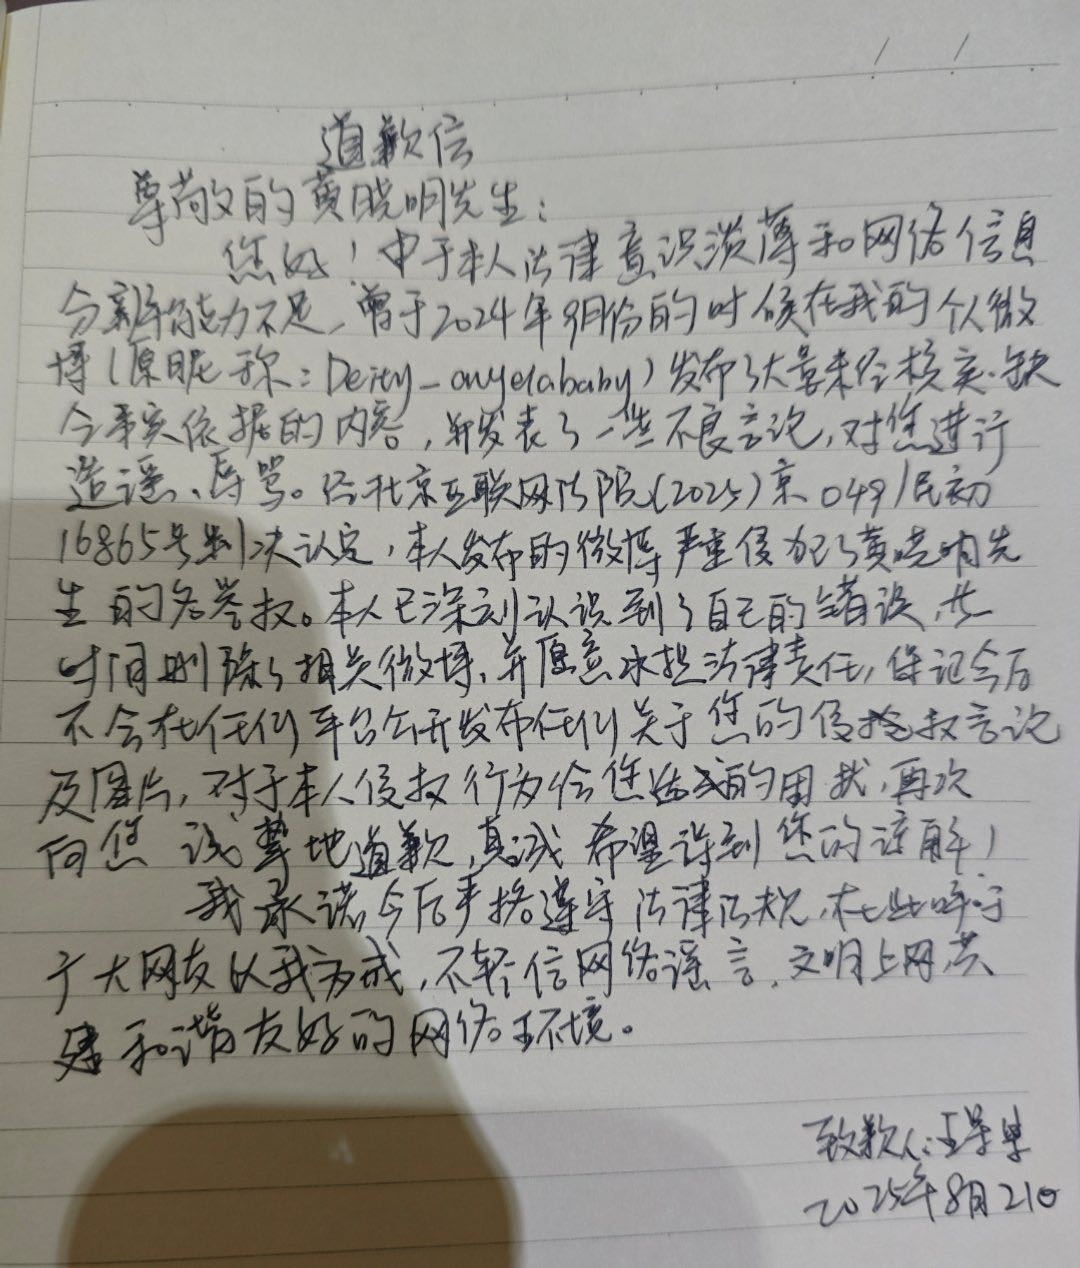 道歉信
尊敬的黄晓明先生：
您好！由于本人法律意识淡薄和网络信息
分辨能力不足，曾于2024年9月份的时候在我的个人微
博（原昵称：Deity-angelababy）发布了大量未经核实、缺
乏事实依据的内容，并发表了一些不良言论，对您进行
造谣、辱骂。经北京互联网法院（2025）京0491民初
16865号判决认定，本人发布的微博严重侵犯了黄晓明先
生的名誉权。本人已深刻认识到了自己的错误，此
时间删除了相关微博，并愿意承担法律责任，保证今后
不会在任何平台公开发布任何关于您的侵权言论
及图片，对于本人侵权行为给您造成的困扰，再次
向您诚挚地道歉，真诚希望得到您的谅解！
我承诺今后严格遵守法律法规，在此呼吁
广大网友以我为戒，不轻信网络谣言，文明上网，共
建和谐友好的网络环境。
致歉人：王
2025年8月21日